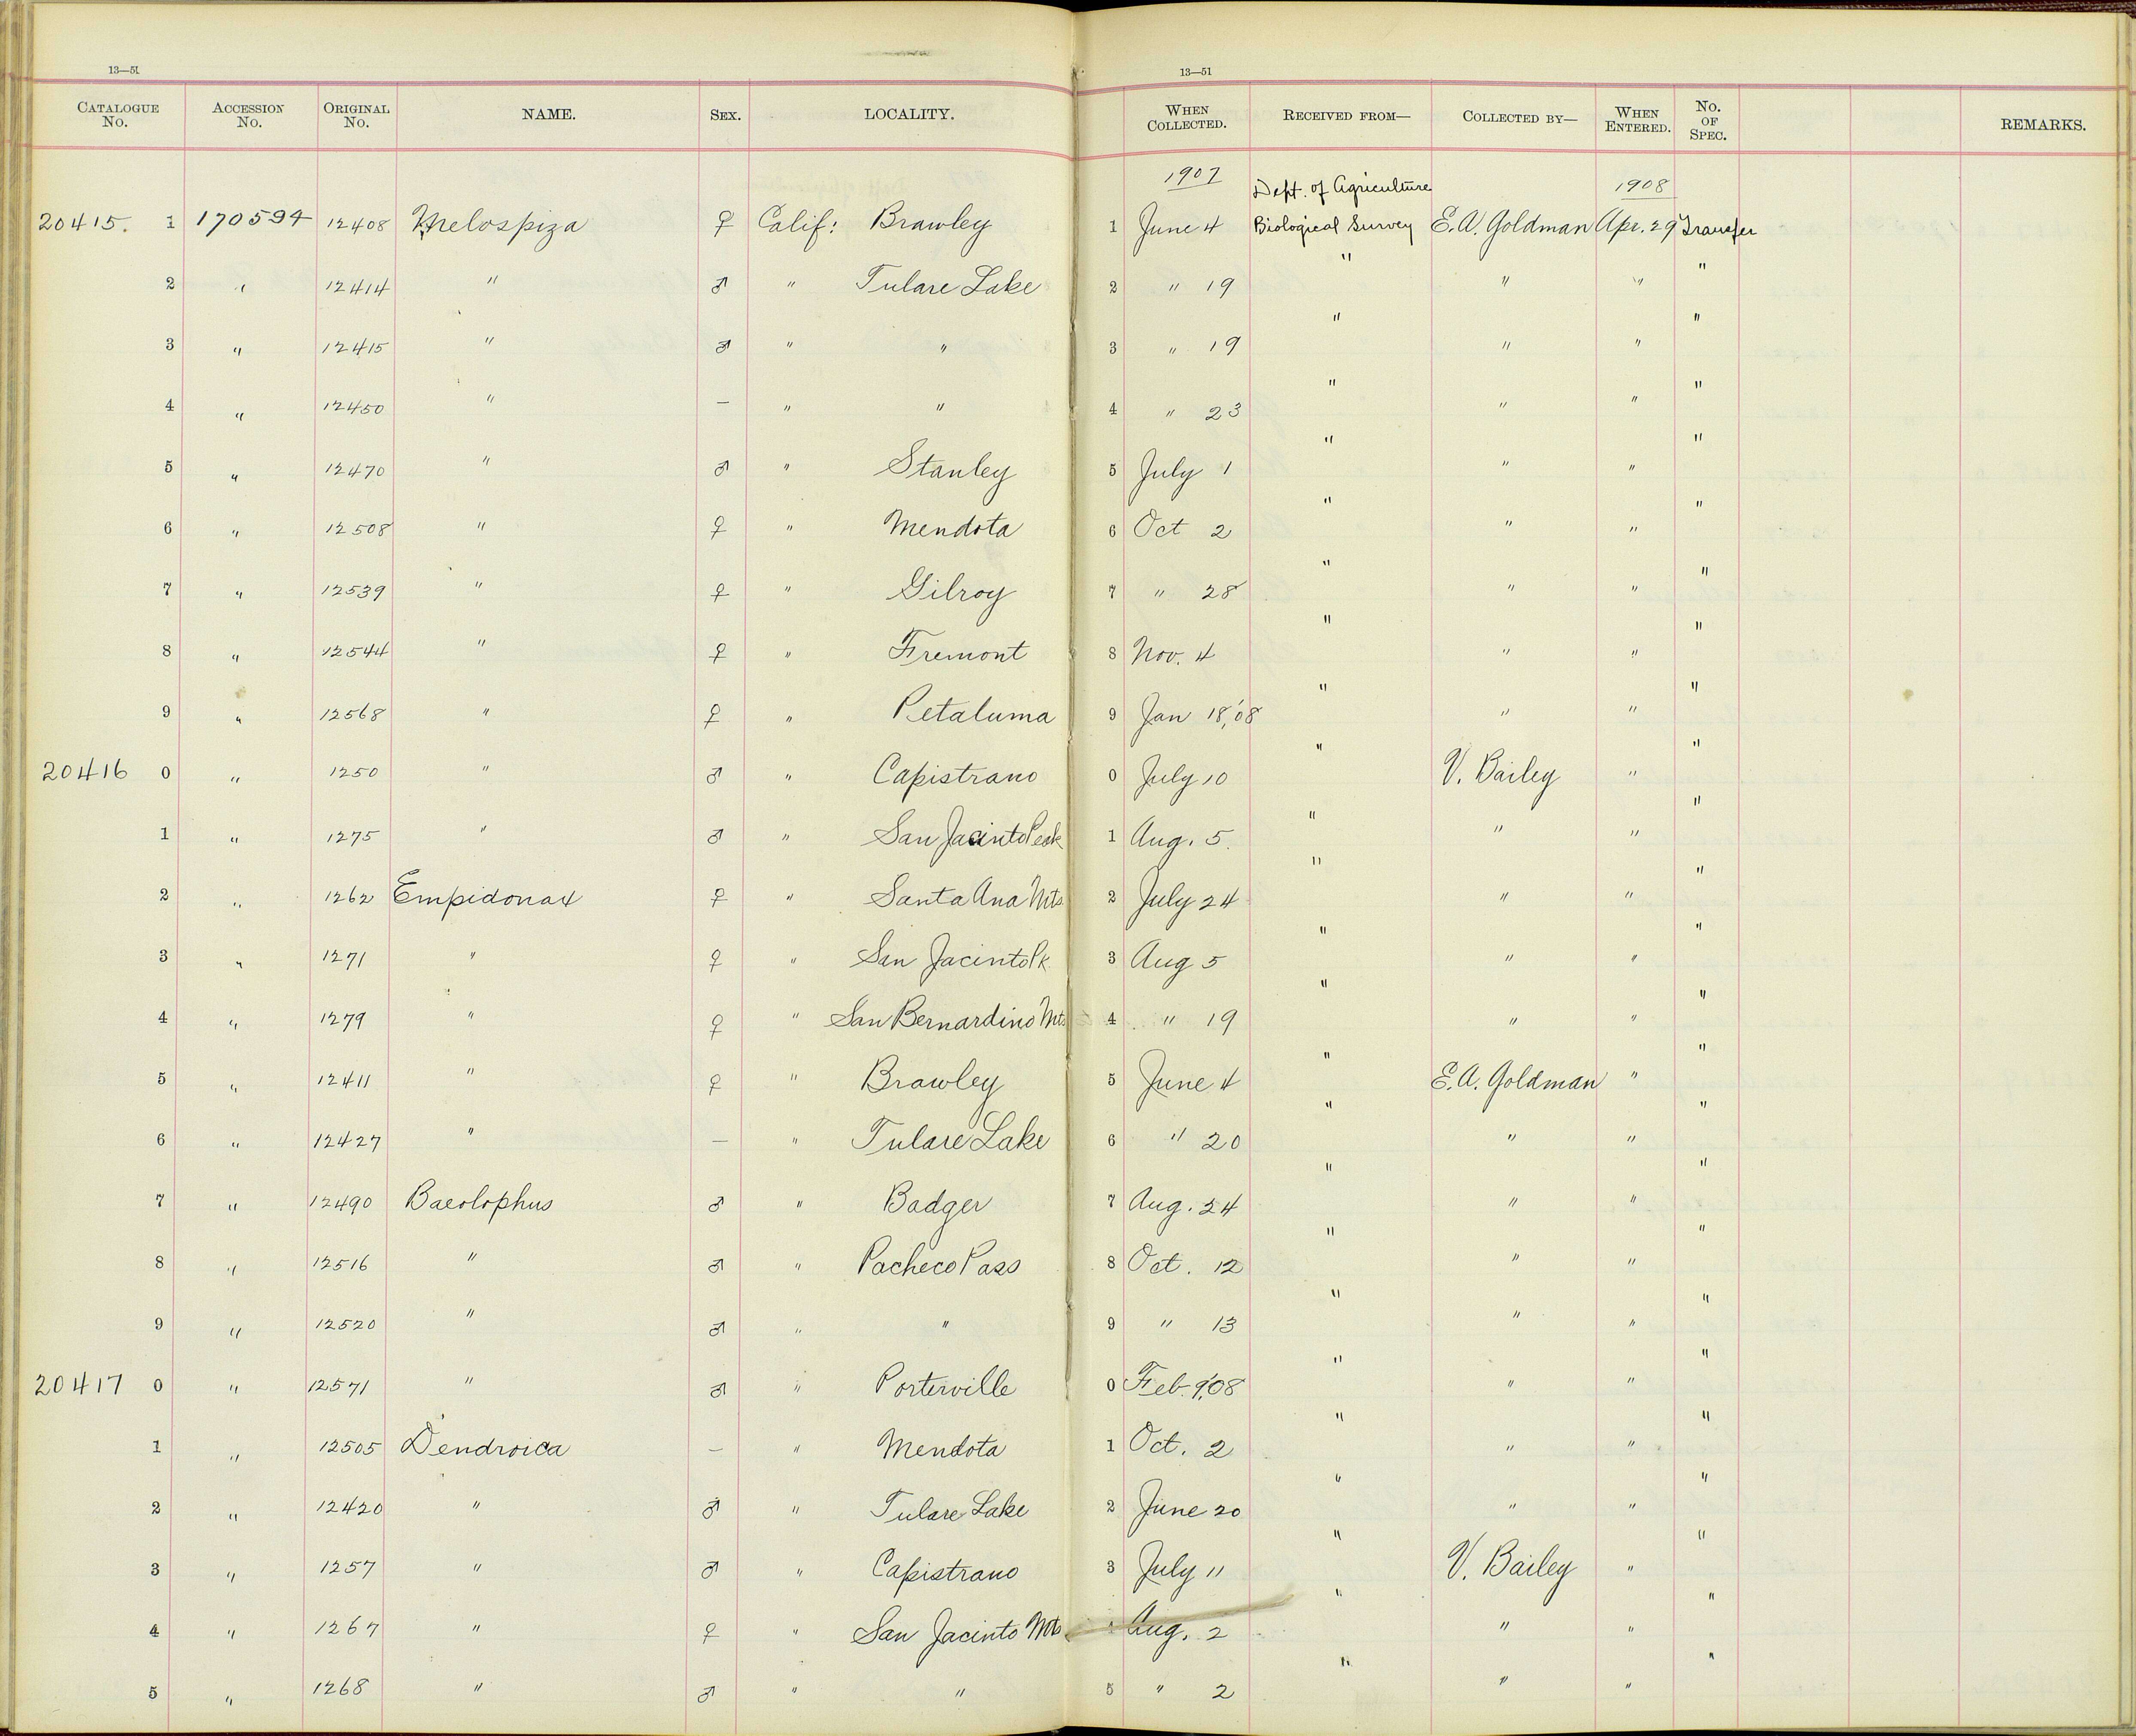 13—51 13—51
CATALOGUE No. ACCESSION No. ORIGINAL No. NAME. SEX. LOCALITY. WHEN COLLECTED. RECEIVED FROM— COLLECTED BY— WHEN ENTERED. No. OF SPEC. REMARKS.
1907 Dept. of Agriculture 1908
20415. 1 170594 12408 Melospiza ♀ Calif: Brawley 1 June 4 Biological Survey E. A. Goldman Apr. 29 Transfer
2 " 12414 " ♂ " Tulare Lake 2 " 19 " " " "
3 " 12415 " ♂ " " 3 " 19 " " " "
4 " 12450 " — " " 4 " 23 " " " "
5 " 12470 " ♂ " Stanley 5 July 1 " " " "
6 " 12508 " ♀ " Mendota 6 Oct 2 " " " "
7 " 12539 " ♀ " Gilroy 7 " 28 " " " "
8 " 12544 " ♀ " Fremont 8 Nov. 4 " " " "
9 " 12568 " ♀ " Petaluma 9 Jan 18,'08 " " " "
20416 0 " 1250 " ♂ " Capistrano 0 July 10 " V. Bailey " "
1 " 1275 " ♂ " San Jacinto Peak 1 Aug. 5. " " " "
2 " 1262 Empidonax ♀ " Santa Ana Mts 2 July 24 " " " "
3 " 1271 " ♀ " San Jacinto Pk 3 Aug 5 " " " "
4 " 1279 " ♀ " San Bernardino Mts 4 " 19 " " " "
5 " 12411 " ♀ " Brawley 5 June 4 " E. A. Goldman " "
6 " 12427 " — " Tulare Lake 6 " 20 " " " "
7 " 12490 Baeolophus ♂ " Badger 7 Aug. 24 " " " "
8 " 12516 " ♂ " Pacheco Pass 8 Oct. 12 " " " "
9 " 12520 " ♂ " " 9 " 13 " " " "
20417 0 " 12571 " ♂ " Porterville 0 Feb. 9,'08 " " " "
1 " 12505 Dendroica — " Mendota 1 Oct. 2 " " " "
2 " 12420 " ♂ " Tulare Lake 2 June 20 " " " "
3 " 1257 " ♂ " Capistrano 3 July 11 " V. Bailey " "
4 " 1267 " ♀ " San Jacinto Mts Aug. 2 " " " "
5 " 1268 " ♂ " " 5 " 2 " " " "